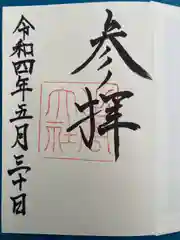 参拝
令和四年五月三十日